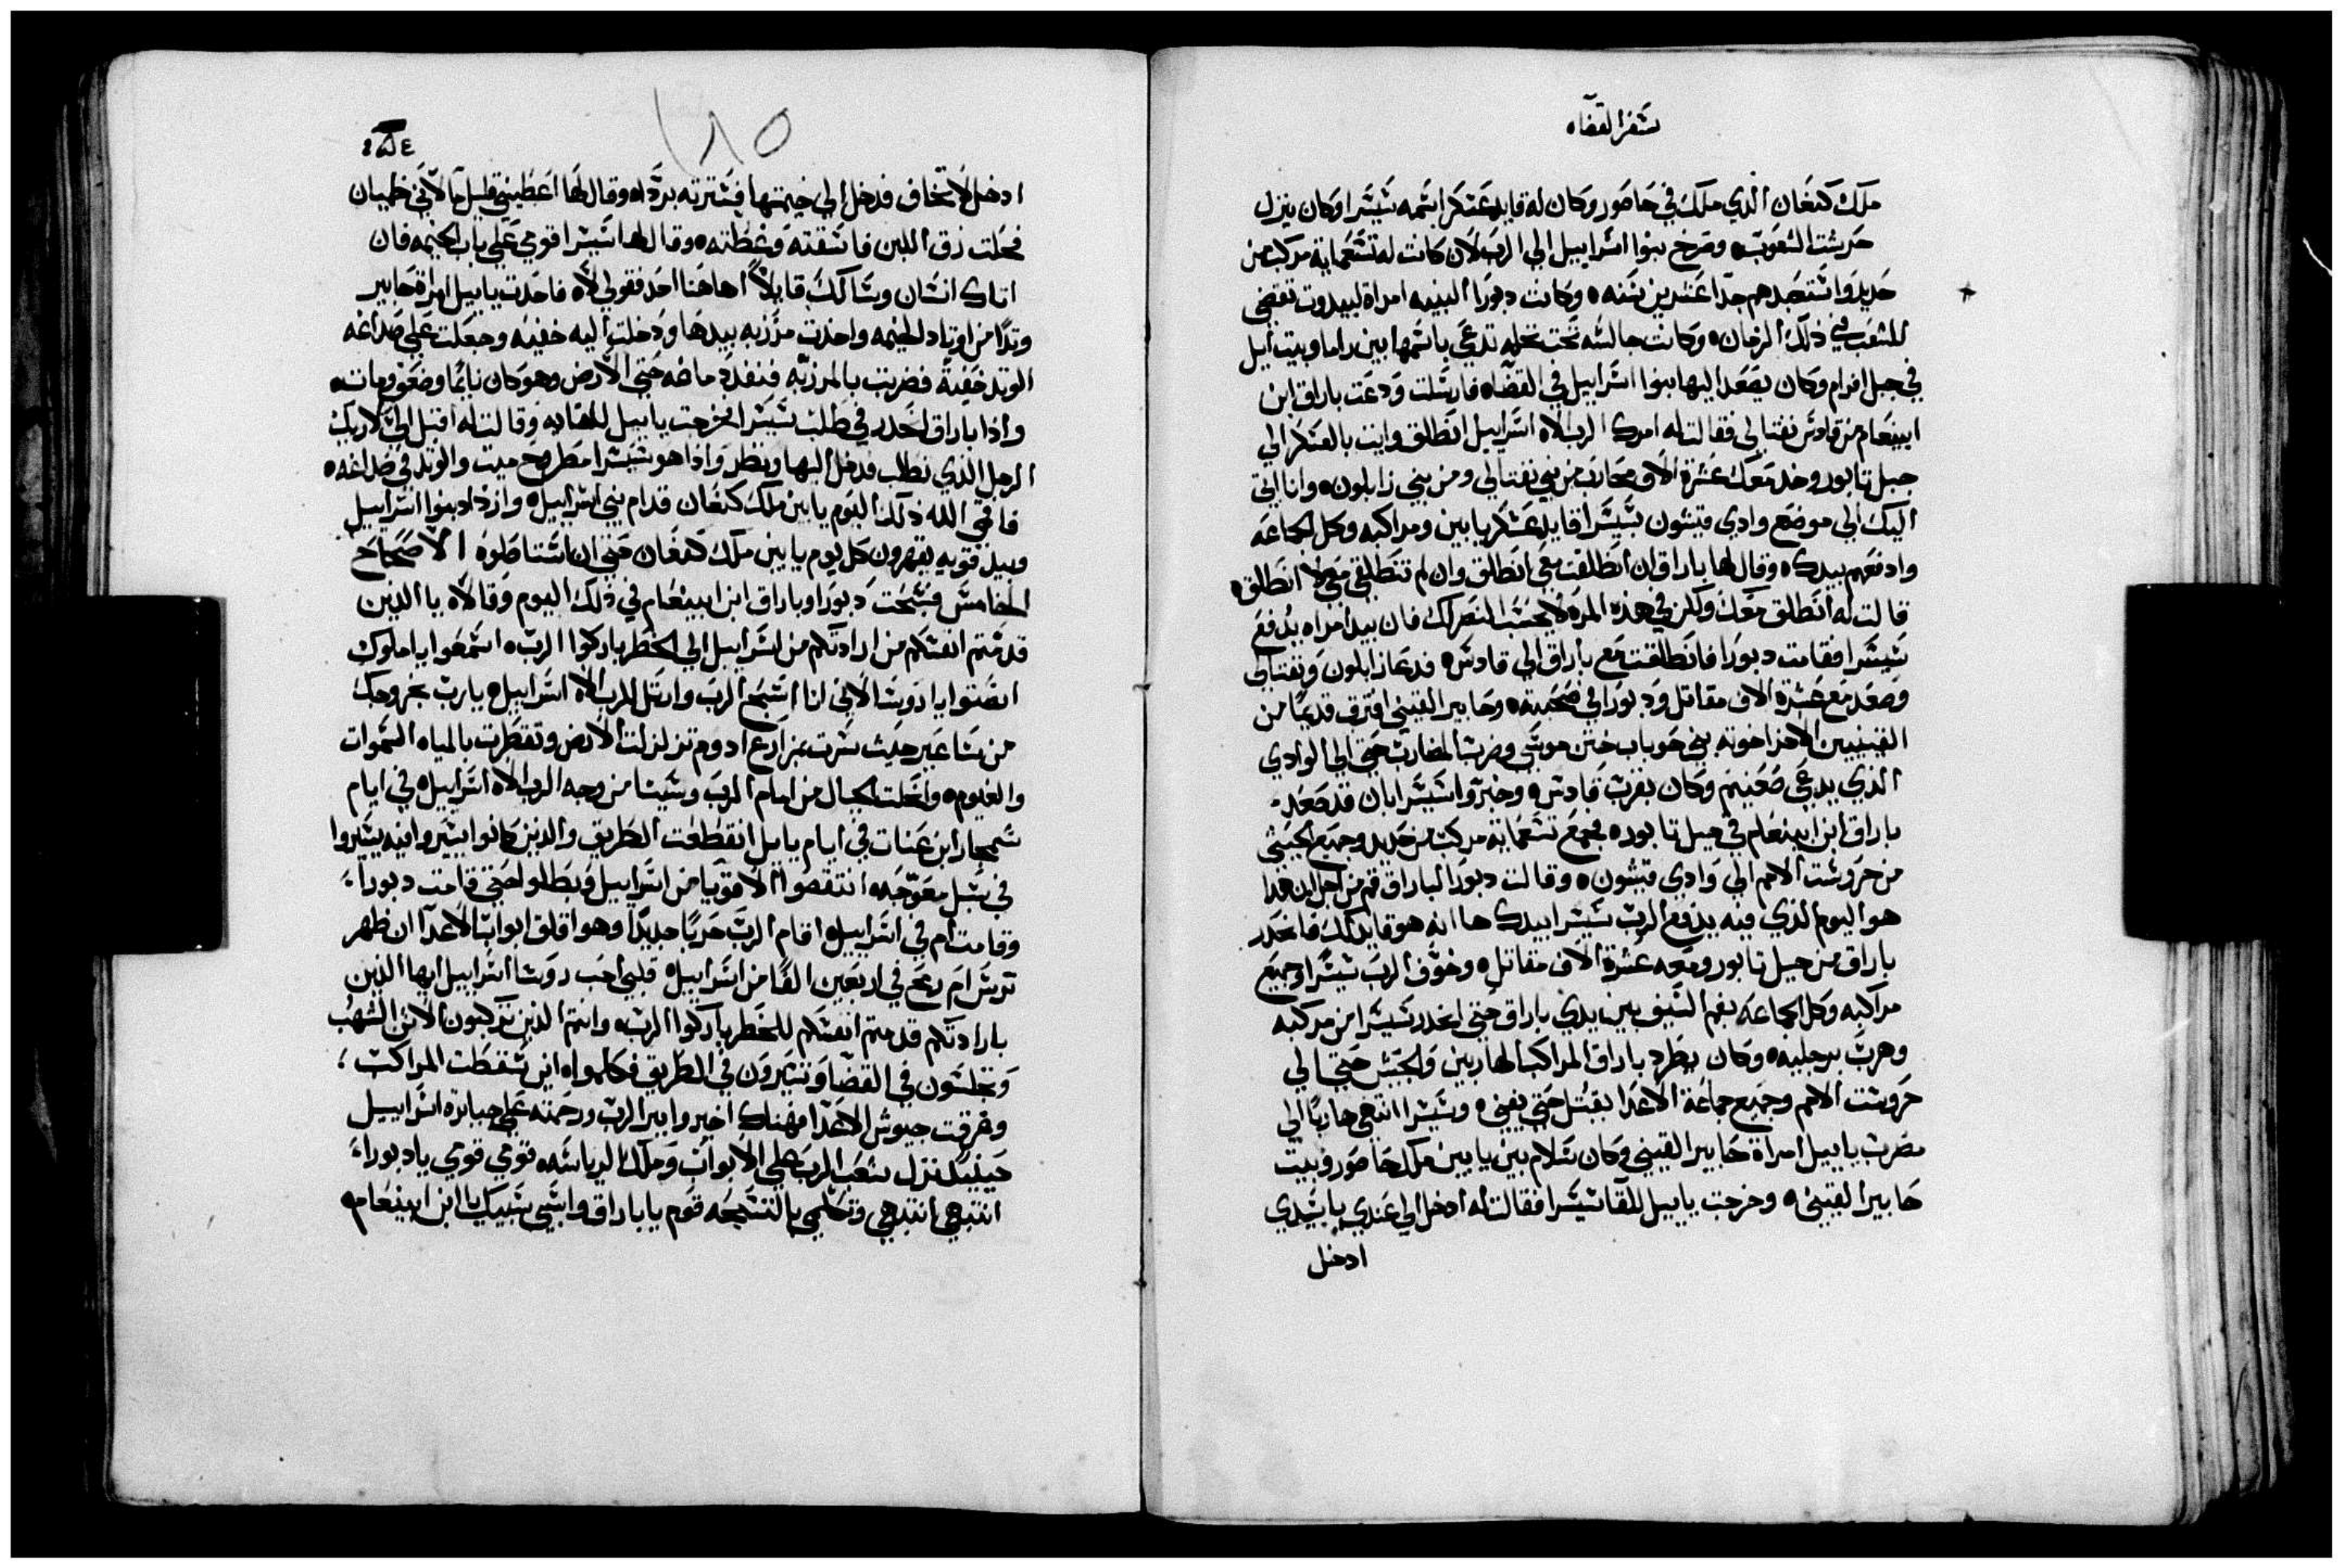 سفر القضاه
ملك كنعان الذي ملك في حاصور وكان له قايد عسكر اسمه سيسرا وكان ينزل
حريشت الشعوب ه وصرخ بنوا اسراييل الي الرب لان كانت له تسعماية مركب من
حديد واستعبدهم جدا عشرين سنه ه وكانت دبورا النبيه امراة لبيدوت تقضي
للشعب في ذلك الزمان ه وكانت جالسه تحت نخله تدعي باسمها بين راما وبيت ايل
في جبل افرام وكان يصعد اليها بنوا اسراييل في القضاه فارسلت ودعت باراق ابن
ابينعام من قادس نفتالي فقالت له امرك الرب الاه اسراييل انطلق وايت بالعسكر الي
جبل تابور وخد معك عشرة الاف محارب من بني نفتالي ومن بني زابلون ه وانا اتي
اليك الي موضع وادي قيشون بسيسرا قايد عسكر يابين ومراكبه وكل الجماعه
وادفعهم بيدك ه وقال لها باراق ان انطلقت معي انطلق وان لم تنطلقي معي لا انطلق ه
قالت له انطلق معك ولكن في هذه المره لا يحسب النصر لك فان بيد امراه يدفع
سيسرا فقامت دبورا فانطلقت مع باراق الي قادس ه فدعا زابلون ونفتالي
وصعد مع عشرة الاف مقاتل ودبورا في صحبته ه وحابير القيني افترق قديمًا من
القينيين الاخر اخوته بني حوباب ختن موسي وضرب المضارب حتي الي الوادي
الذي يدعي صعنيم وكان بقرب قادس ه وخبروا سيسرا بان قد صعد
باراق ابن ابينعام في جبل تابور ه فجمع تسعماية مركب من حديد وجميع الجيش
من حروشت الامم الي وادي قيشون ه وقالت دبورا لباراق قم من اجل ان هذا
هو اليوم الذي فيه يدفع الرب سيسرا بيدك ها انه هو قايد لك فانحدر
باراق من جبل تابور ومعه عشرة الاف مقاتل ه وخوف الرب سيسرا وجميع
مراكبه وكل الجماعه بفم السيف بين يدي باراق حتي انحدر سيسرا من مركبه
وهرب برجليه ه وكان يطرد باراق المراكب الهاربين والجيش حتي الي
حروشت الامم وجميع جماعة الاعدا بقتل حتي يفني ه وسيسرا انتهي هاربًا الي
مضرب ياييل امراة حابير القيني وكان سلام بين يابين ملك حاصور وبيت
حابير القيني ه وخرجت ياييل للقا سيسرا فقالت له ادخل الي عندي يا سيدي
ادخل
١٨٥
ادخل لا تخاف فدخل الي خيمتها فسترته بردا ه وقال لها اعطيني قليل ما لاني ظميان
فحلت زق اللبن فاسقته وغطته ه وقال لها سيسرا قومي علي باب الخيمه فان
اتاك انسان وسالك قايلاً اهاهنا احد فقولي لا ه فاخدت ياييل امراة حابير
وتدًا من اوتاد الخيمه واخدت مرزبه بيدها ودخلت اليه خفيه وجعلت علي صداغه
الوتد خفيةً فضربت بالمرزبه فنفد دماغه حتي الارض وهو كان نايمًا وضعف ومات ه
واذا باراق انحدر في طلب سيسرا فخرجت ياييل للقايه وقالت له اقبل الي لاريك
الرجل الذي تطلب فدخل اليها ونظر واذا هو سيسرا مطروح ميت والوتد في صداغه ه
فاقي الله ذلك اليوم يابين ملك كنعان قدام بني اسراييل ه وازداد بنوا اسراييل
وبيد قويه يقهرون كل يوم يابين ملك كنعان حتي ان استاصلوه الاصحاح
الخامس فسبحت دبورا وباراق ابن ابينعام في ذلك اليوم وقالا ه يا الذين
قدمتم انفسكم من ارادتكم من اسراييل الي الخطر باركوا الرب ه اسمعوا يا ملوك
انصتوا يا روسا لاني انا اسبح الرب وارتل للرب الاه اسراييل ه يا رب بخروجك
من ساعير حيث سرت بمزارع ادوم تزلزلت الارض وتقطرت بالمياه السموات
والغيوم ه وانحلت الجبال من امام الرب وسينا من وجه الرب الاه اسراييل ه في ايام
شمجار ابن عنات في ايام ياييل انقطعت الطريق والذين كانوا يسيروا فيه يسيروا
في سبل معوجه ه انتقصوا الاقويا من اسراييل وبطلوا حتي قامت دبورا
وقامت ام في اسراييل ه اقام الرب حربًا جديدًا وهو اقلق ابواب الاعدا ان ظهر
ترس ام رمح في اربعين الفًا من اسراييل ه قلبي احب روسا اسراييل ايها الذين
بارادتكم قدمتم انفسكم للخطر باركوا الرب ه وانتم الذين تركبون الاتن الشهب
وتجلسون في القضا وتسيرون في الطريق فكلموا ه اين سقطت المراكب
وغرقت جيوش الاعدا فهناك اخبروا ببر الرب ورحمته علي جبابرة اسراييل
حينيد نزل شعب الرب الي الابواب وملك الرياسه ه قومي قومي يا دبورا
انتبهي انتبهي وتكلمي بالتسبحه قوم يا باراق واسبي سبيك يا ابن ابينعام ه